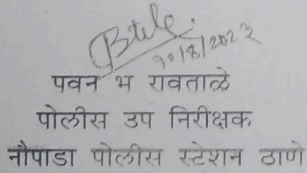 पवन भ रावताळे
पोलीस उप निरीक्षक
नौपाडा पोलीस स्टेशन ठाणे